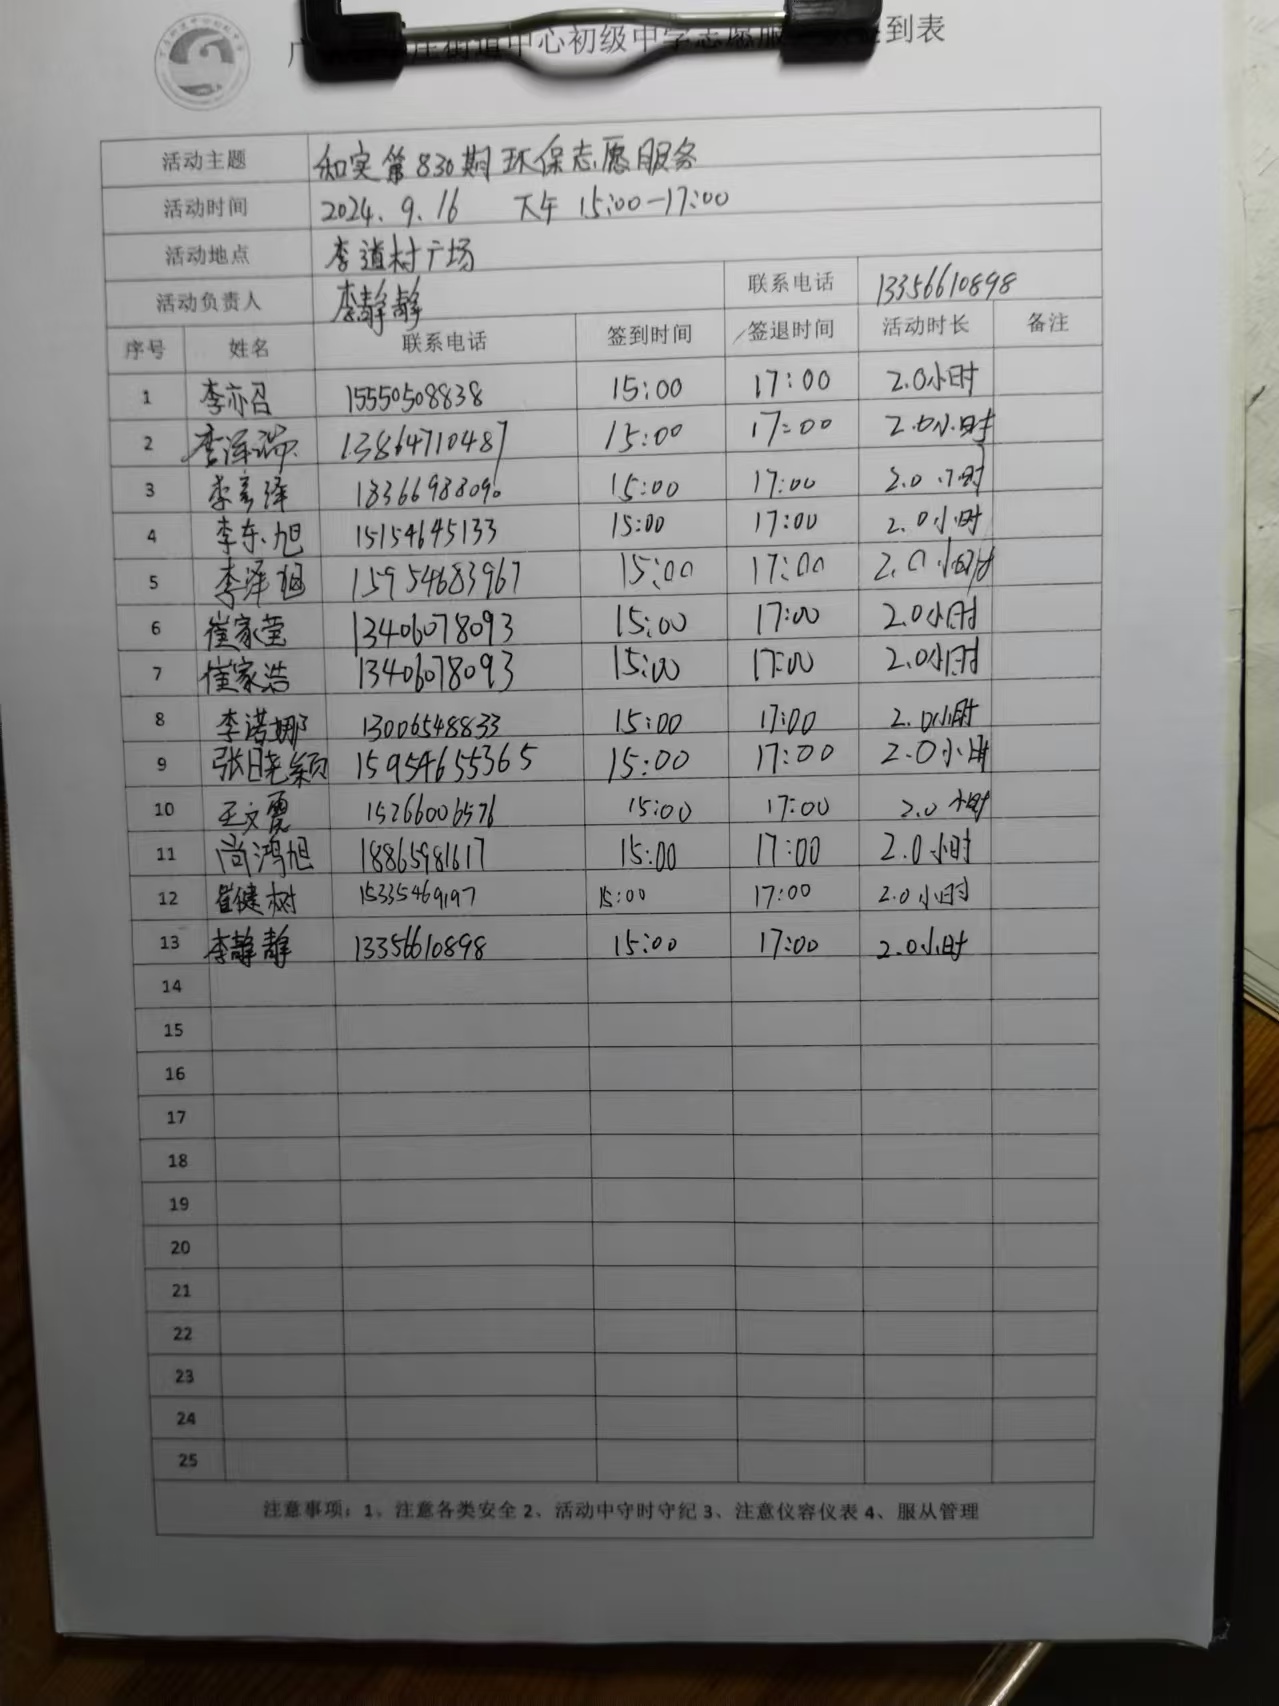 中心初级中学志愿服 到表
活动主题 和实第830期环保志愿服务
活动时间 2024.9.16 下午 15:00-17:00
活动地点 李道村广场
活动负责人 李静静 联系电话 13356610898
序号 姓名 联系电话 签到时间 签退时间 活动时长 备注
1 李亦召 15550508838 15:00 17:00 2.0小时
2 13864710487 15:00 17:00 2.0小时
3 李彦泽 18366988090 15:00 17:00 2.0小时
4 李东旭 15154645133 15:00 17:00 2.0小时
5 李泽 15954683967 15:00 17:00 2.0小时
6 崔家莹 13406078093 15:00 17:00 2.0小时
7 崔家浩 13406078093 15:00 17:00 2.0小时
8 李诺娜 13006548833 15:00 17:00 2.0小时
9 张晓颖 15954655365 15:00 17:00 2.0小时
10 王文霞 15266006576 15:00 17:00 2.0小时
11 尚鸿旭 18865981617 15:00 17:00 2.0小时
12 崔健树 15335469197 15:00 17:00 2.0小时
13 李静静 13356610898 15:00 17:00 2.0小时
14
15
16
17
18
19
20
21
22
23
24
25
注意事项：1、注意各类安全 2、活动中守时守纪 3、注意仪容仪表 4、服从管理